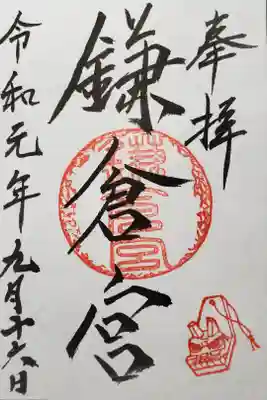 奉拝
鎌倉宮
令和元年九月十六日